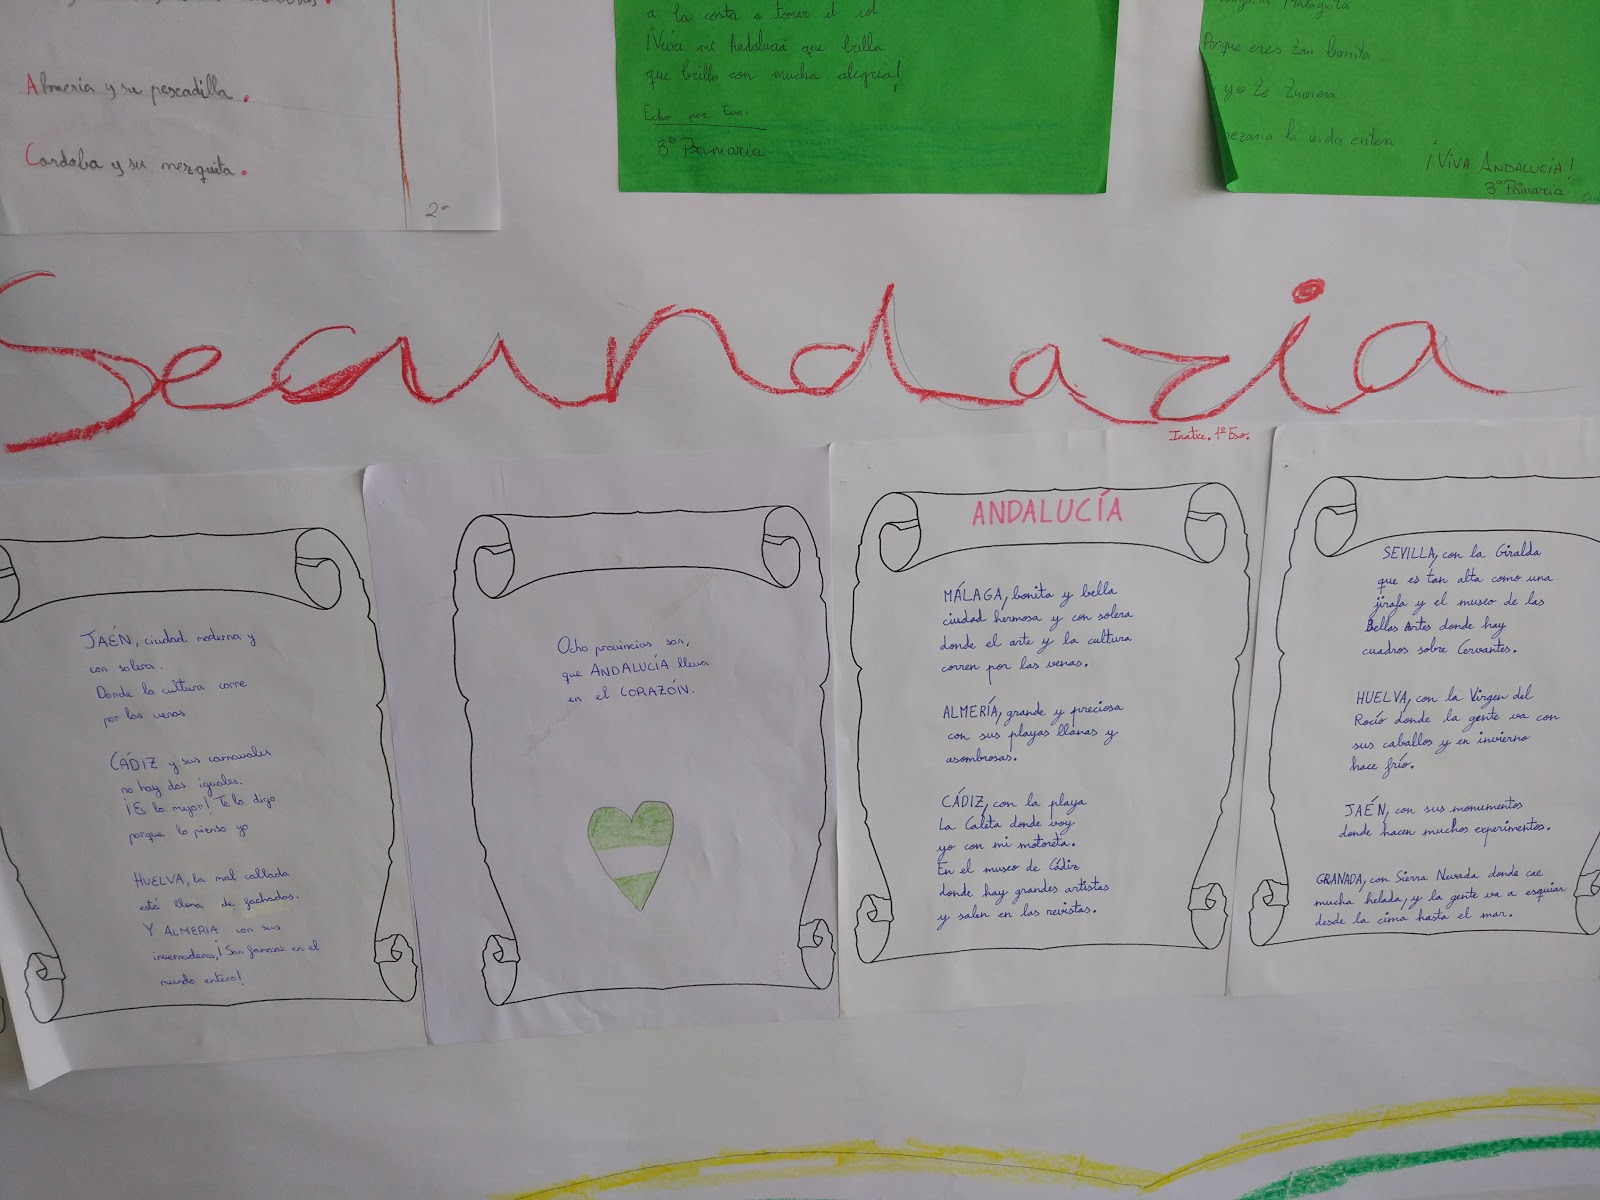 Almería y su pescadilla.
Cordoba y su mezquita.
2º
a la costa a tomar el sol
¡Viva mi Andalucía que brilla
que brilla con mucha alegria!
Echo por
3º Primaria
Malaguita
Porque eres tan bonita
yo te
la vida entera
¡VIVA ANDALUCÍA!
3º Primaria
Secundaria
Iratxe. 1º Eso.
JAÉN, ciudad moderna y
con solera.
Donde la cultura corre
por las venas
CÁDIZ y sus carnavales
no hay dos iguales.
¡Es lo mejor! Te lo digo
porque lo pienso yo
HUELVA, la mal callada
está llena de fachadas.
Y ALMERIA con sus
invernaderos, ¡Son famosos en el
mundo entero!
Ocho provincias son,
que ANDALUCÍA lleva
en el CORAZÓN.
ANDALUCÍA
MÁLAGA, bonita y bella
ciudad hermosa y con solera
donde el arte y la cultura
corren por las venas.
ALMERÍA, grande y preciosa
con sus playas llanas y
asombrosas.
CÁDIZ, con la playa
La Caleta donde voy
yo con mi motoreta.
En el museo de Cádiz
donde hay grandes artistas
y salen en las revistas.
SEVILLA, con la Giralda
que es tan alta como una
jirafa y el museo de las
Bellas Artes donde hay
cuadros sobre Cervantes.
HUELVA, con la Virgen del
Rocío donde la gente va con
sus caballos y en invierno
hace frío.
JAÉN, con sus monumentos
donde hacen muchos experimentos.
GRANADA, con Sierra Nevada donde cae
mucha helada, y la gente va a esquiar
desde la cima hasta el mar.